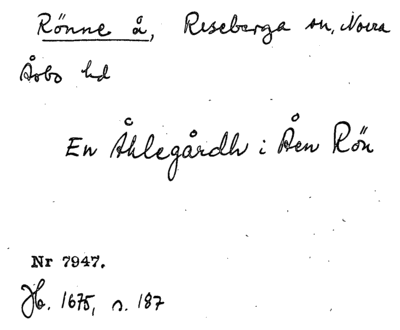 Rönne å, Riseberga sn, Norra
Åsbo hd
En Åhlegårdh i Åen Rön
Nr 7947.
Jb. 1675, s. 187